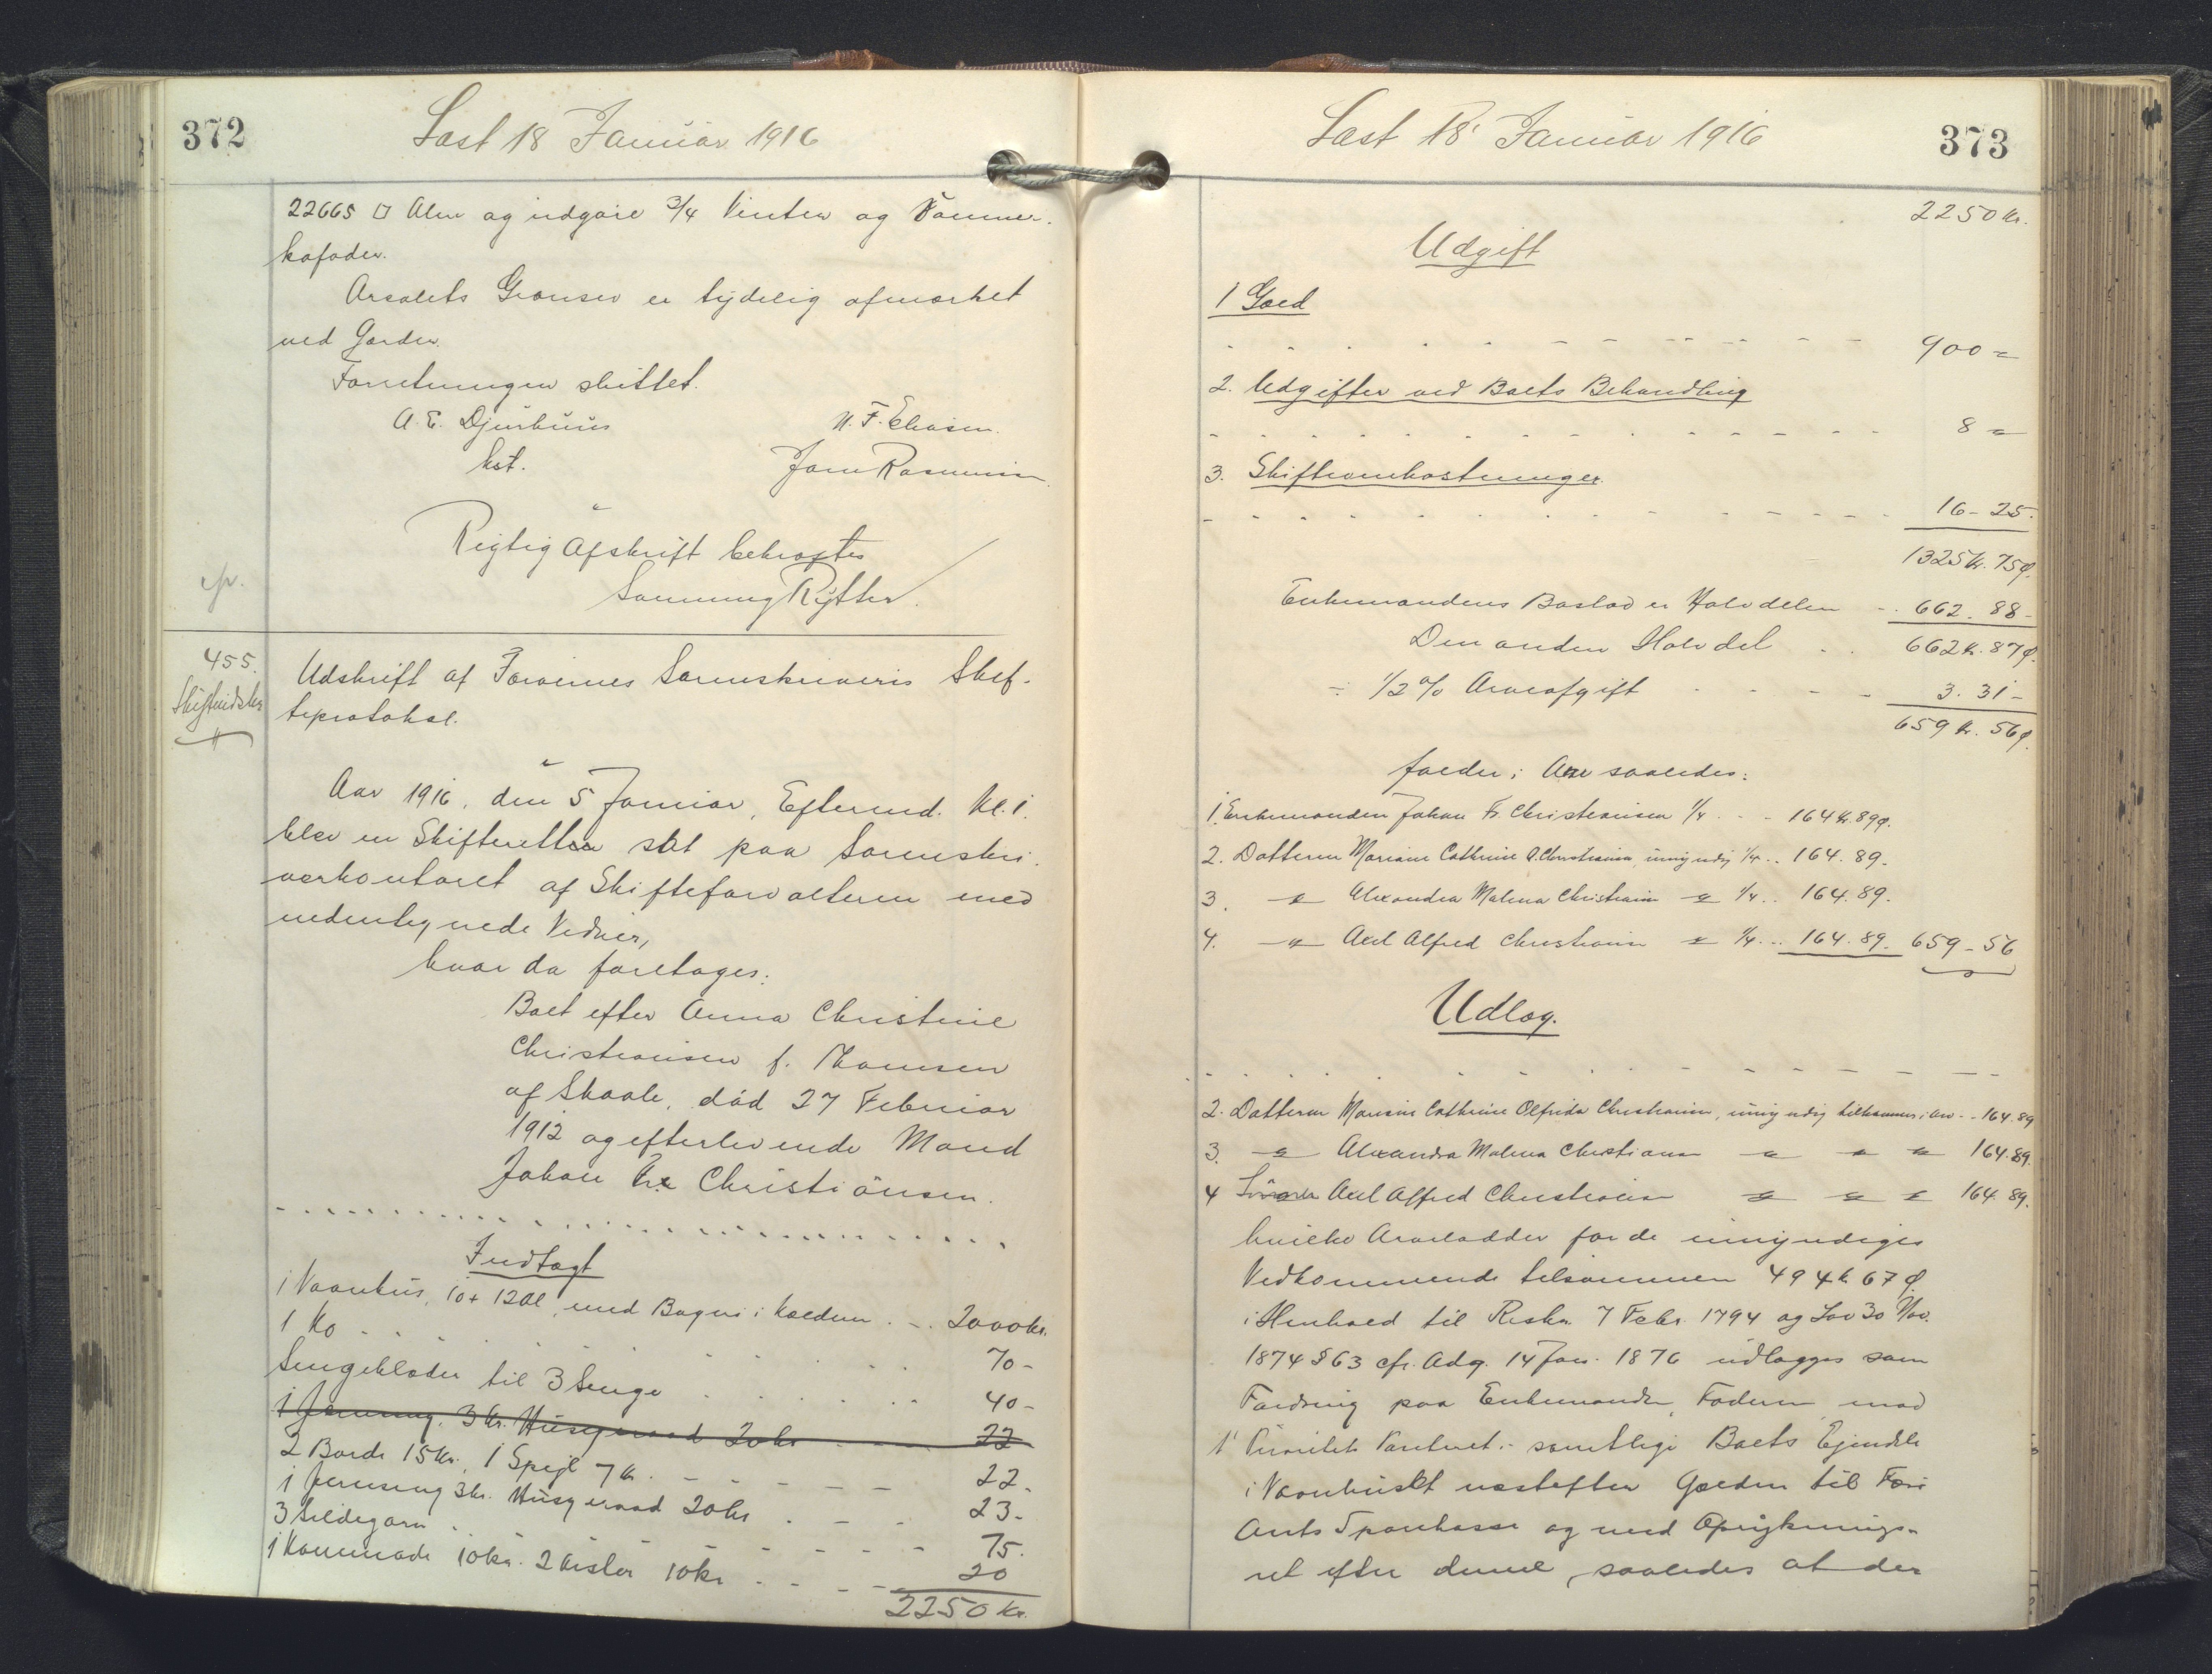 372
Læst 18 Januar 1916
22665 □ Alen og udgøre 3/4 Vinter og Sommer-
kofoder.
Arealets Grænser er tydelig afmærket
ved Gærder.
Forretningen sluttet.
A. E. Djurhuus
N. F. Eliasen.
kst.
Joen Rasmussen
Rigtig Afskrift bekræftes
Sommung Rytter.
cfr.
455.
Skifteudskr.
Udskrift af Færøernes Sorenskriveris Skif-
teprotokol.
Aar 1916, den 5 Januar, Eftermd. Kl. 1.
blev en Skifteretten sat paa Sorenskri-
verkontoret af Skifteforvalteren med
undertegnede Vidner,
hvor da foretoges:
Boet efter Anna Christine
Christiansen f. Thomsen
af Skaale, død 27 Februar
1912 og efterlevende Mand
Johan Fr. Christiansen.
Indtægt
1 Vaanhus, 10 x 12 Al, med Bagni i Kælderen . - . 2000 kr.
1 Ko . . . 70 -
Sengeklæder til 3 Senge . . . 40 -
1 Jernseng, 3 Kr. Husgeraad 20 kr . . . 23
2 Borde 15 Kr., 1 Spejl 7 K. - - - 22.
1 Jernseng 3 kr. Husgeraad 20 kr . - . 23.
3 Sildegarn . - - - 75.
1 Kommode 10 kr. 2 Kister 10 kr . - - 20
2250 Kr.
373
Læst 18' Januar 1916
2250 Kr.
Udgift
1 Gæld
. . . . . - - - - 900 "
2. Udgifter ved Boets Behandling
- . . . . . - - - 8 "
3. Skifteomkostninger
- - . . . . - - - 16 - 25.
1325 K. 75 Ø.
Enkemandens Boslod er Halvdelen - . 662. 88 -
Den anden Halvdel . . 662 K. 87 Ø.
÷ 1/2 % Arveafgift . . - - 3. 31 -
659 K. 56 Ø.
falder i Arv saaledes:
1. Enkemanden Johan Fr. Christiansen 1/4 . . - 164 K. 89 Ø.
2. Datteren Mariane Cathrine O. Christiansen, umyndig 1/4 .. 164. 89.
3. " Alexandra Malena Christiansen " 1/4 .. 164. 89.
4. " Axel Alfred Christiansen " 1/4 ... 164. 89. 659 - 56
Udlæg.
2. Datteren Mariane Cathrine Olfrida Christiansen, umyndig tilkommer i Arv - . 164. 89
3. " Alexandra Malena Christiansen " " " 164. 89.
4 Sønnen Axel Alfred Christiansen " " " 164. 89.
hvilke Arvelodder for de umyndiges
Vedkommende tilsammen 494 K 67 Ø.
i Henhold til Reskr. 7 Febr. 1794 og Lov 30 Nov.
1874 § 63 cfr. Adg. 14 Jan. 1876 udlægges som
Fordring paa Enkemanden, Faderen mod
1' Prioritets Panteret i samtlige Boets Ejendele
i Vaanhuset næstefter Gælden til Færø
Amts Sparekasse og med Opryknings-
ret efter denne, saaledes at der